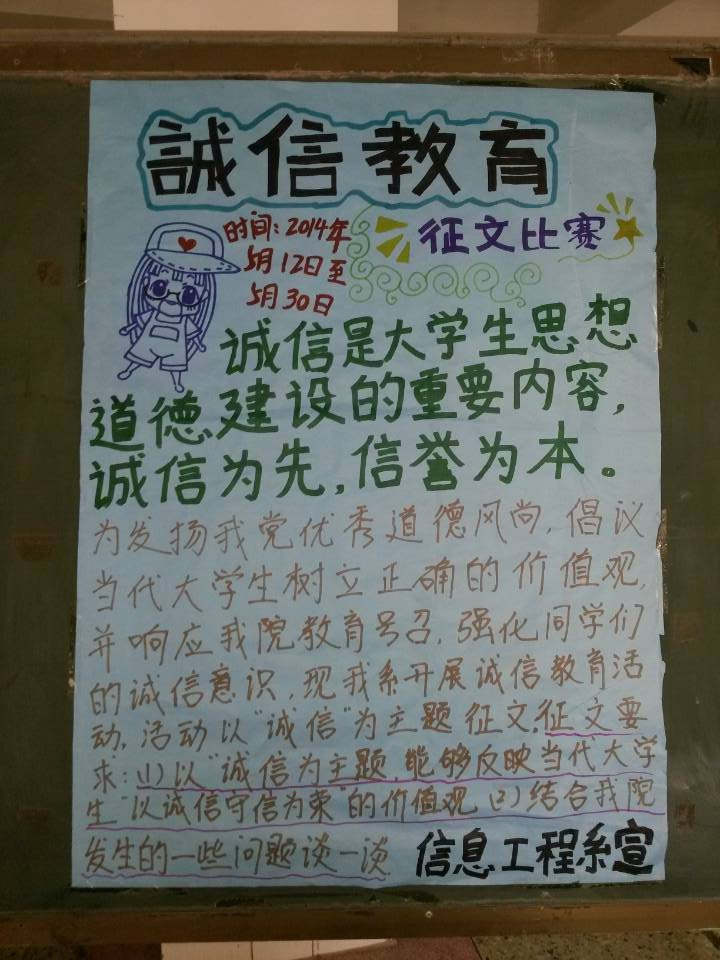 誠信教育
征文比赛
时间:2014年
5月12日至
5月30日
诚信是大学生思想
道德建设的重要内容,
诚信为先,信誉为本。
为发扬我党优秀道德风尚,倡议
当代大学生树立正确的价值观,
并响应我院教育号召,强化同学们
的诚信意识,现我系开展诚信教育活
动,活动以“诚信”为主题征文,征文要
求:(1)以“诚信为主题,能够反映当代大学
生“以诚信守信为荣”的价值观(2)结合我院
发生的一些问题谈一谈
信息工程系宣